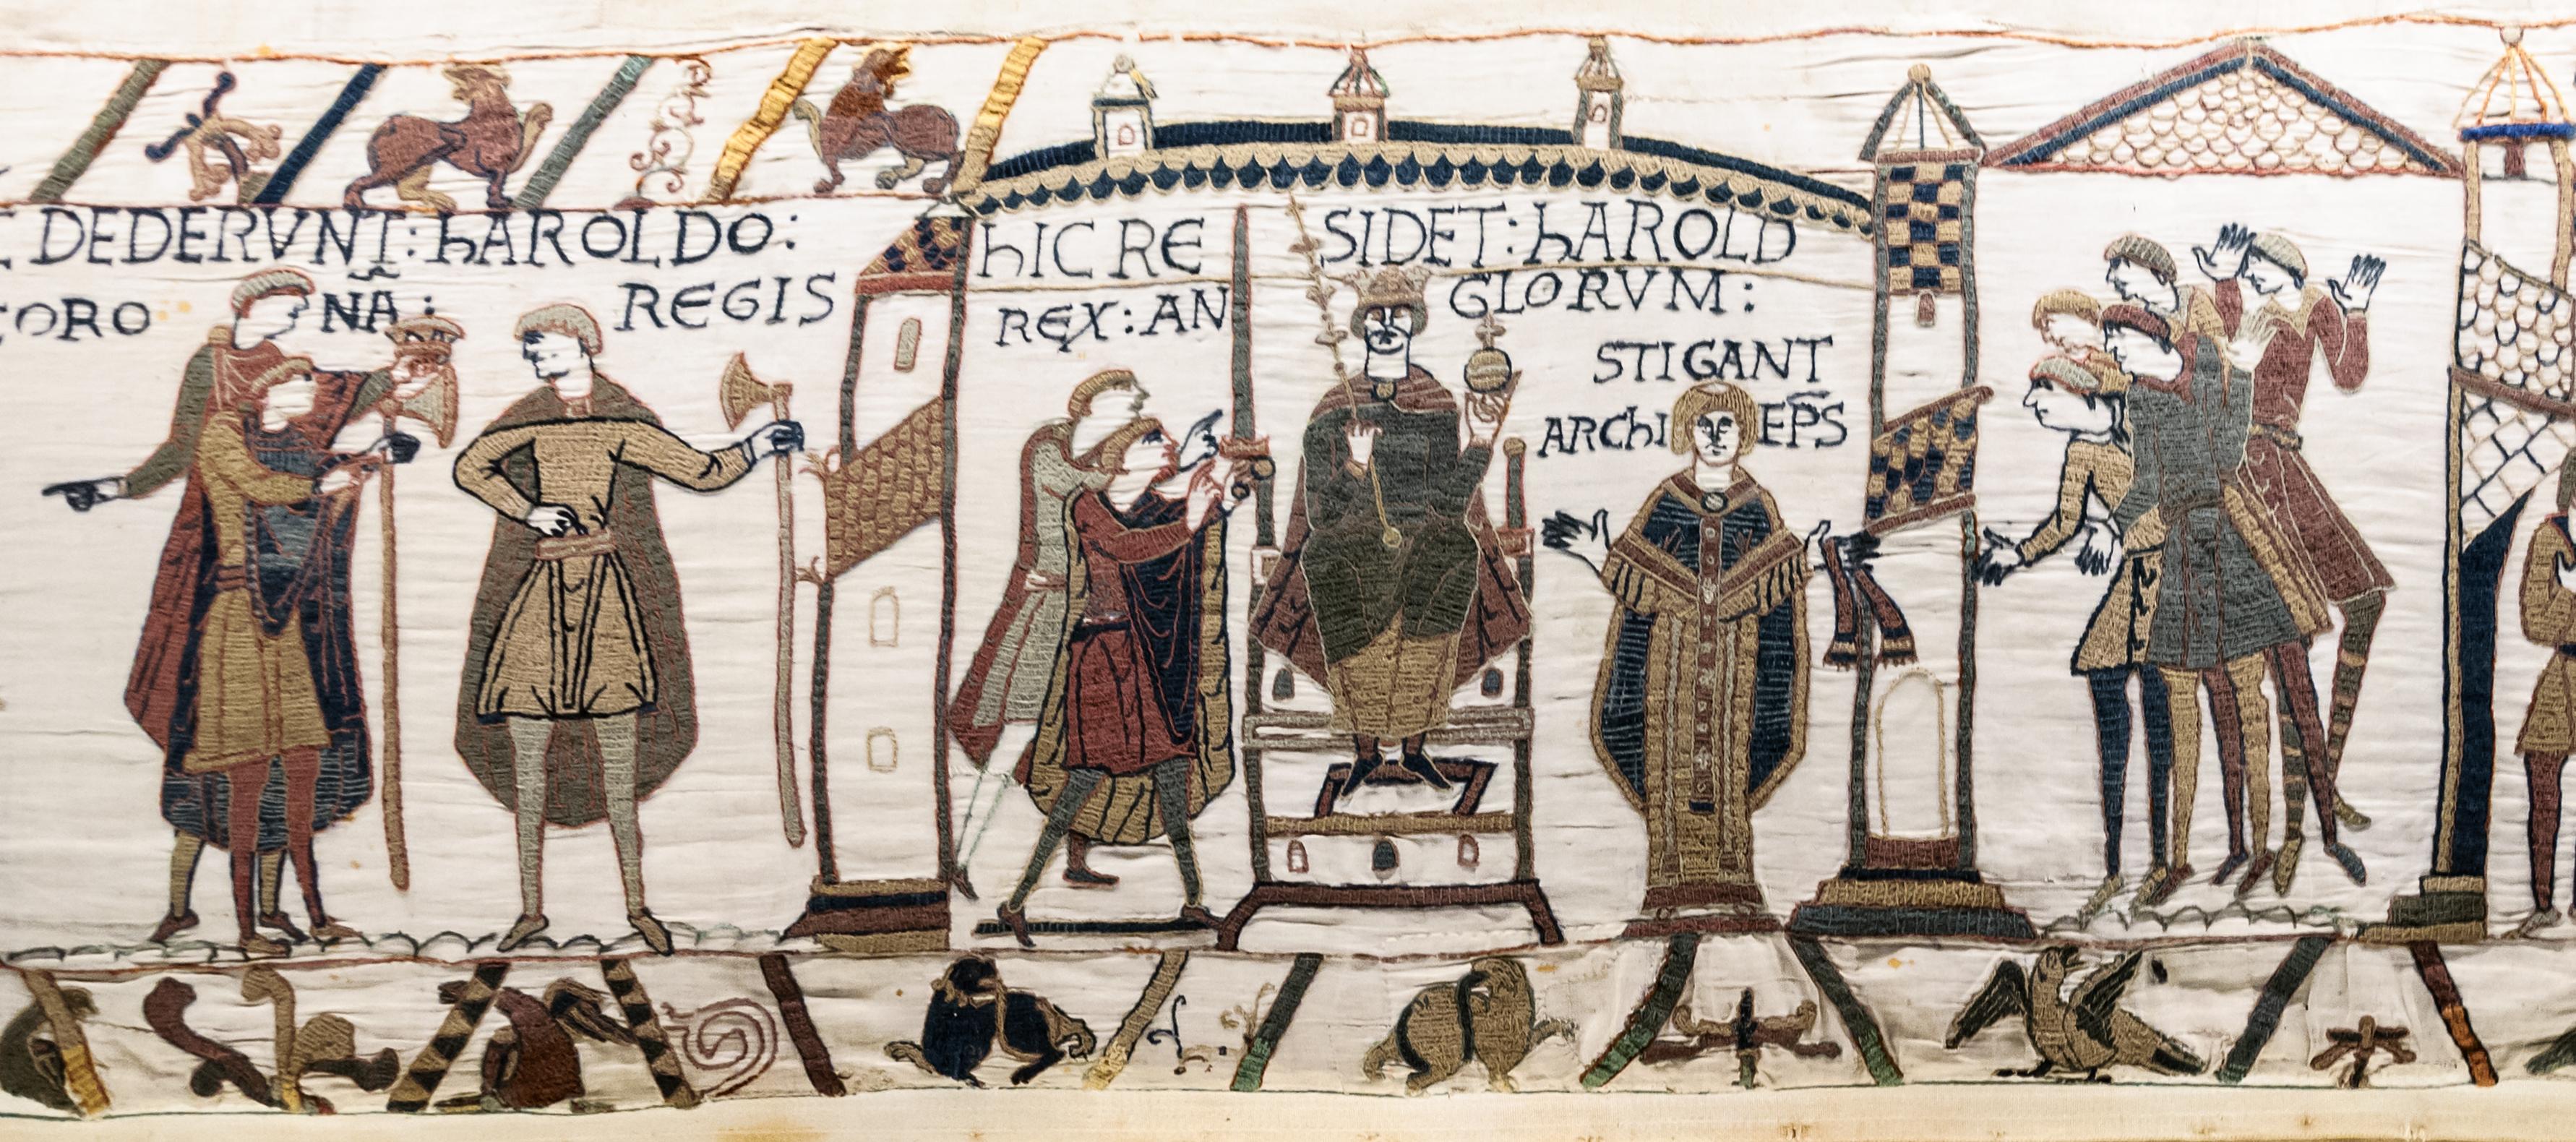 DEDERVNT : hAROLDO :
CORO NÃ : REGIS
hIC RE SIDET : hAROLD
REX : AN GLORVM :
STIGANT
ARChI EP̄S